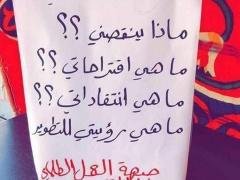 ماذا ينقصني ؟؟
ما هي اقتراحاتي ؟؟
ما هي انتقاداتي ؟؟
ما هي رؤيتي للتطوير
جبهة العمل الطلابي